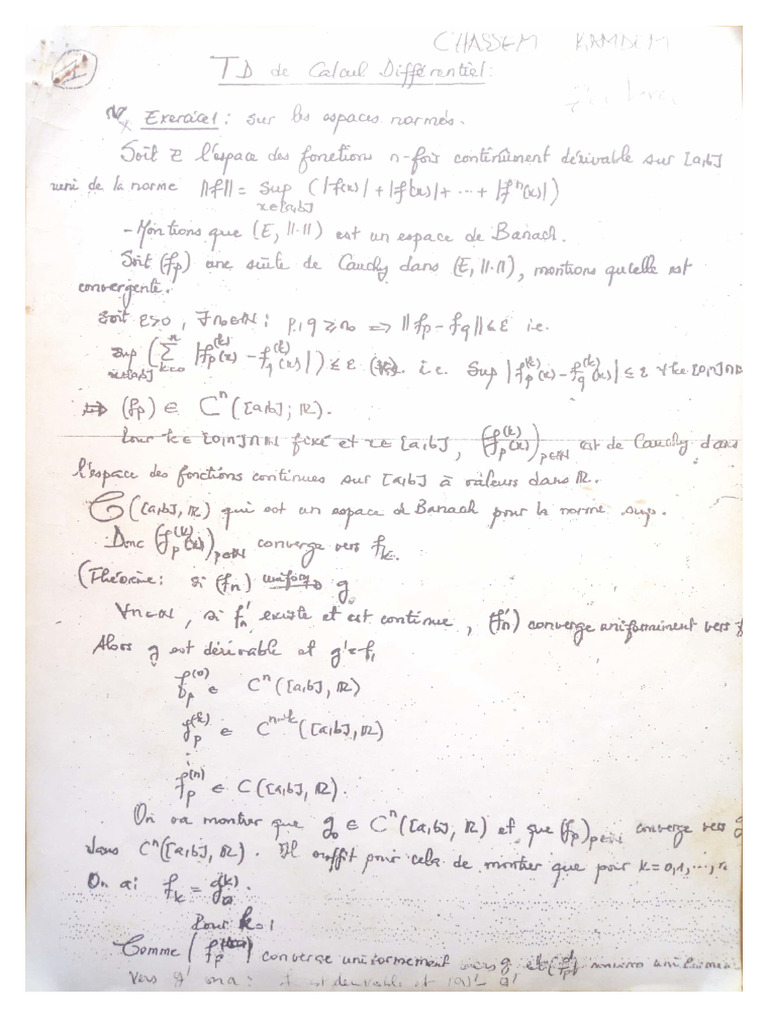 CHASSEM KAMDEM
TD de Calcul Différentiel:
Exercice1 : sur les espaces normés.
Soit E l'espace des fonctions n-fois continûment dérivable sur [a,b]
muni de la norme ||f|| = sup (|f(x)| + |f'(x)| + ... + |f^n(x)|)
x∈[a,b]
- Montrons que (E, ||.||) est un espace de Banach.
Soit (fp) une suite de Cauchy dans (E, ||.||), montrons qu'elle est
convergente.
Soit ε>0, ∃n₀∈ℕ : p,q ≥ n₀ => ||fp - fq|| ≤ ε i.e.
sup (∑_{k=0}^{n} |fp^(k)(x) - fq^(k)(x)|) ≤ ε i.e. Sup |fp^(k)(x) - fq^(k)(x)| ≤ ε ∀k∈[0,n]∩ℕ
x∈[a,b]
(fp) ∈ C^n([a,b]; ℝ).
Pour k∈[0,n]∩ℕ fixé et x∈[a,b], (fp^(k)(x))_{p∈ℕ} est de Cauchy dans
l'espace des fonctions continues sur [a,b] à valeurs dans ℝ.
C([a,b], ℝ) qui est un espace de Banach pour la norme sup.
Donc (fp^(k)(x))_{p∈ℕ} converge vers fk.
(Théorème: si (fn) uniform→ g
∀n∈ℕ, si fn' existe et est continue, (fn') converge uniformément vers
Alors g est dérivable et g'=f₁
fp^(0) ∈ C^n([a,b], ℝ)
fp^(k) ∈ C^{n-k}([a,b], ℝ)
fp^(n) ∈ C([a,b], ℝ).
On va montrer que g₀ ∈ C^n([a,b], ℝ) et que (fp)_{p∈ℕ} converge vers g
dans C^n([a,b], ℝ). Il suffit pour cela de montrer que pour k=0,1,...,n
On a: fk = g₀^(k).
Pour k=1
Comme (fp) converge uniformement vers g et
vers g' on a: est derivable et